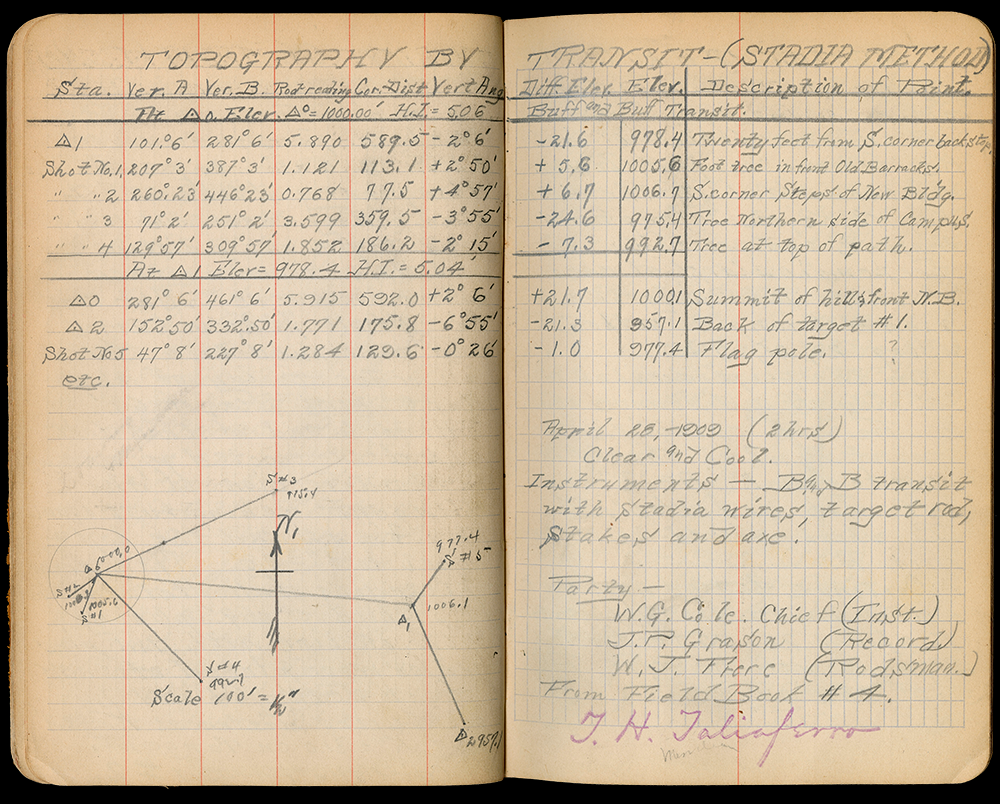 TOPOGRAPHY BY TRANSIT-(STADIA METHOD)
Sta. Ver. A Ver. B. Rod reading Cor. Dist Vert Ang Diff. Elev. Elev. Description of Point.
At △0. Elev. △0 = 1000.00' H.I. = 5.06 Buff and Buff Transit.
△1 101°6' 281°6' 5.890 589.5 -2°6' -21.6 978.4 Twenty feet from S. corner backstop.
Shot No. 1, 207°3' 387°3' 1.121 113.1 +2°50' +5.6 1005.6 Foot tree in front Old Barracks.
" " 2 260°23' 446°23' 0.768 77.5 +4°57' +6.7 1006.7 S. corner Steps of New Bldg.
" " 3 71°2' 251°2' 3.599 359.5 -3°55' -24.6 975.4 Tree Northern side of Campus.
" " 4 129°57' 309°57' 1.852 186.2 -2°15' -7.3 992.7 Tree at top of path.
At △1 Elev = 978.4 H.I. = 5.04'
△0 281°6' 461°6' 5.915 592.0 +2°6' +21.7 1000.1 Summit of hill in front N.B.
△2 152°50' 332°50' 1.771 175.8 -6°55' -21.3 957.1 Back of target #1.
Shot No 5 47°8' 227°8' 1.284 129.6 -0°26' -1.0 977.4 Flag pole. ?
etc.
April 28, -1909 (2hrs)
Clear and Cool.
Instruments — B and B transit
with stadia wires, target rod,
stakes and axe.
Party —
W.G. Cole. Chief (Inst.)
J.P. Grason (Record)
W.J. Frere (Rodsman.)
From Field Book #4.
T. H. Taliaferro
S#3
975.4
N.
△0 1000.0
S#2
S#1
1005.6
977.4
S#5
△1
1006.1
S#4
992.7
Scale 100' = 
△2 957.1